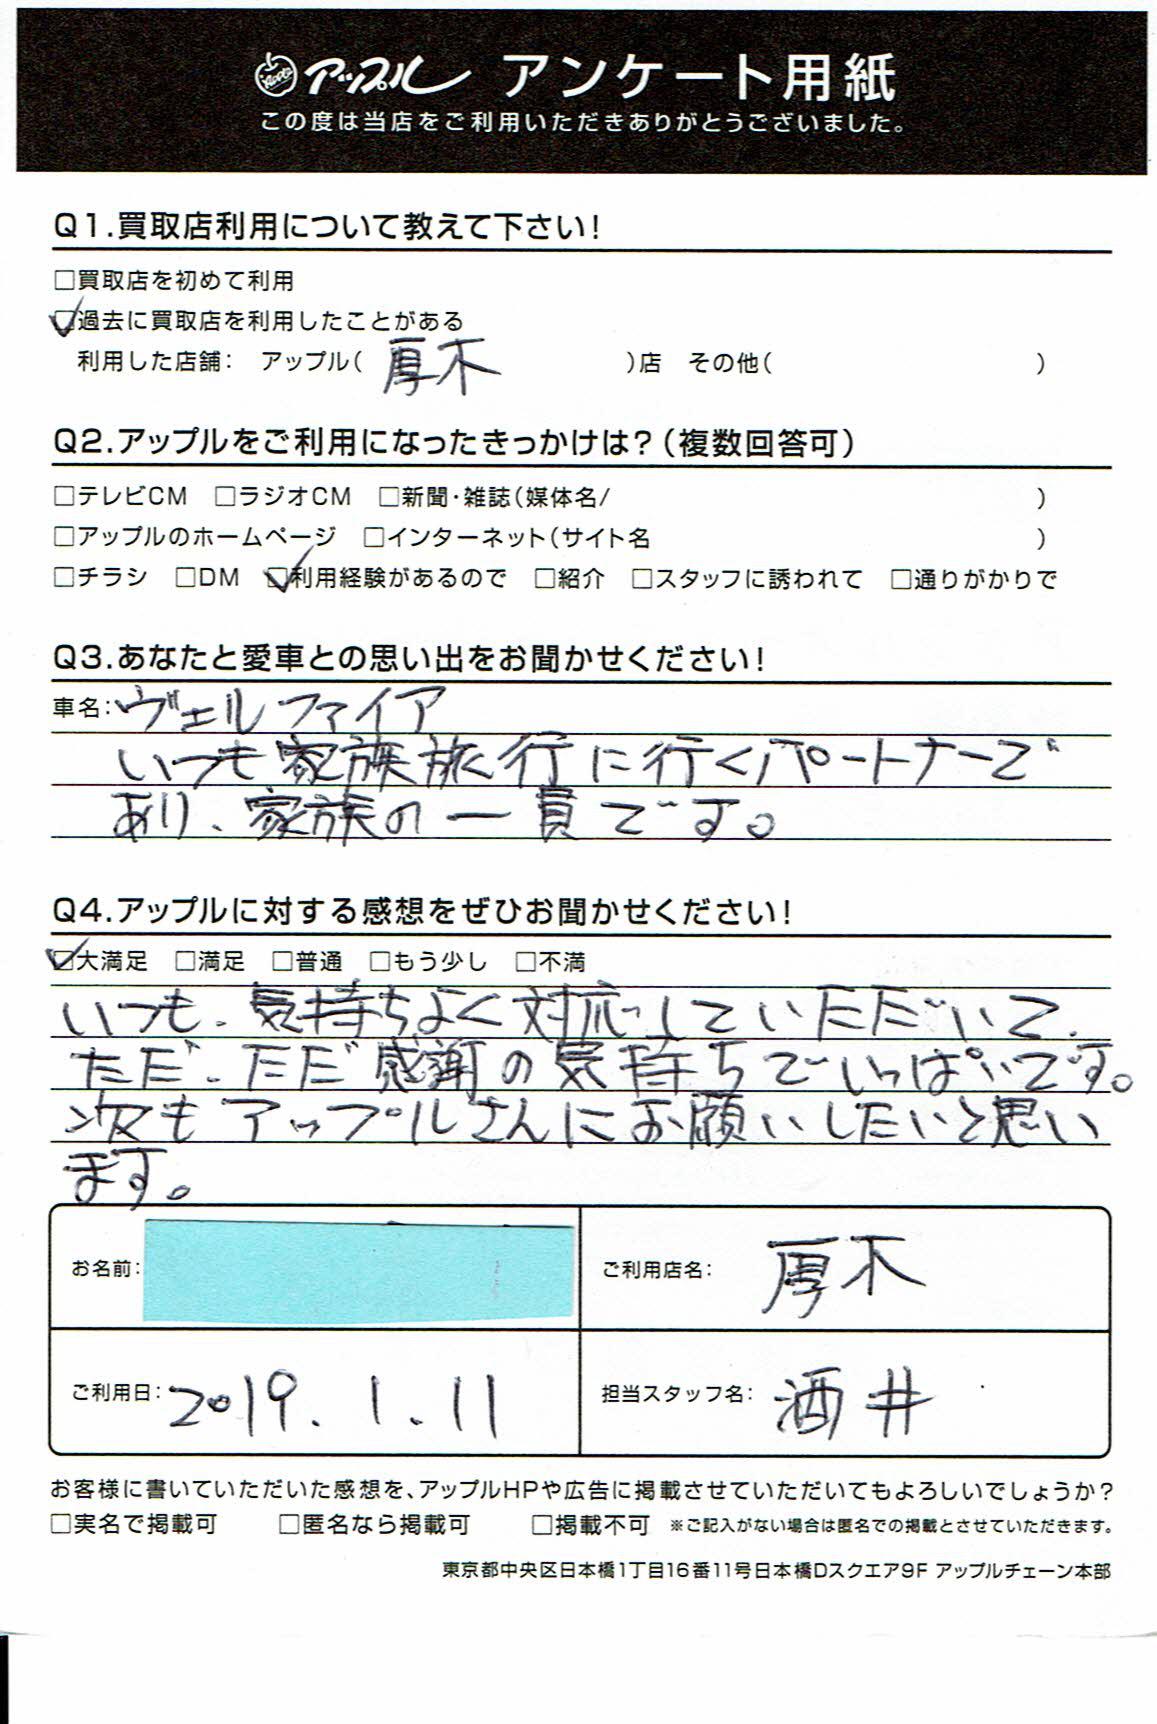 Apple アップル アンケート用紙
この度は当店をご利用いただきありがとうございました。
Q1.買取店利用について教えて下さい!
□買取店を初めて利用
☑過去に買取店を利用したことがある
利用した店舗: アップル( 厚木 )店 その他( )
Q2.アップルをご利用になったきっかけは?(複数回答可)
□テレビCM □ラジオCM □新聞・雑誌(媒体名/ )
□アップルのホームページ □インターネット(サイト名 )
□チラシ □DM ☑利用経験があるので □紹介 □スタッフに誘われて □通りがかりで
Q3.あなたと愛車との思い出をお聞かせください!
車名: ヴェルファイア
いつも家族旅行に行くパートナーで
あり、家族の一員です。
Q4.アップルに対する感想をぜひお聞かせください!
☑大満足 □満足 □普通 □もう少し □不満
いつも、気持ちよく対応していただいて、
ただ、ただ感謝の気持ちでいっぱいです。
次もアップルさんにお願いしたいと思い
ます。
お名前: ご利用店名: 厚木
ご利用日: 2019.1.11 担当スタッフ名: 酒井
お客様に書いていただいた感想を、アップルHPや広告に掲載させていただいてもよろしいでしょうか?
□実名で掲載可 □匿名なら掲載可 □掲載不可 ※ご記入がない場合は匿名での掲載とさせていただきます。
東京都中央区日本橋1丁目16番11号日本橋Dスクエア9F アップルチェーン本部